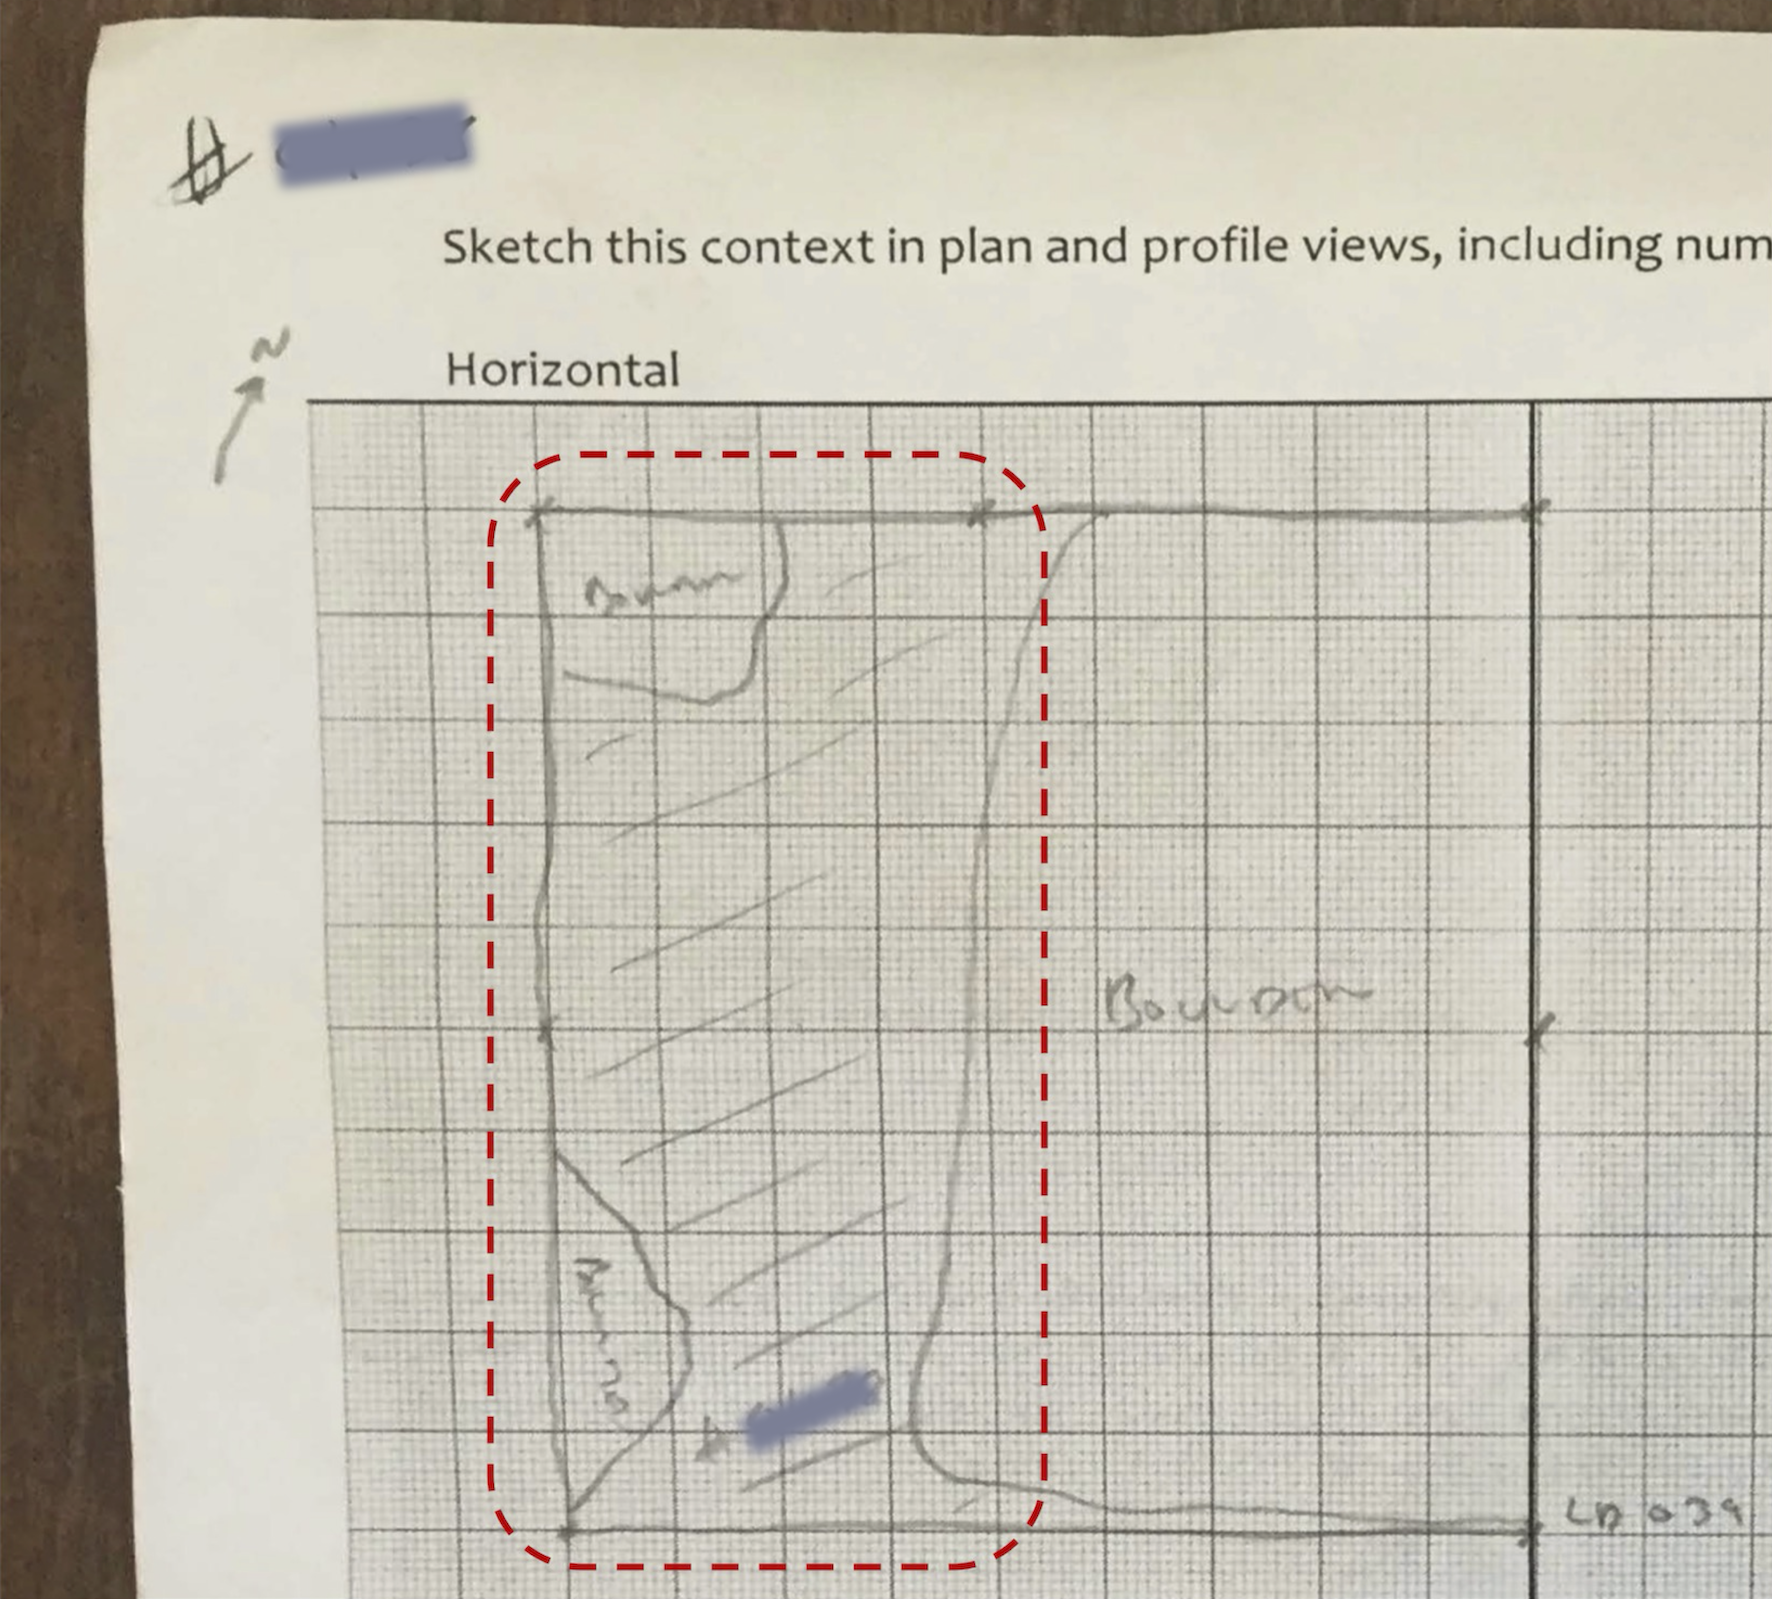 #
Sketch this context in plan and profile views, including num
N
Horizontal
Boulder